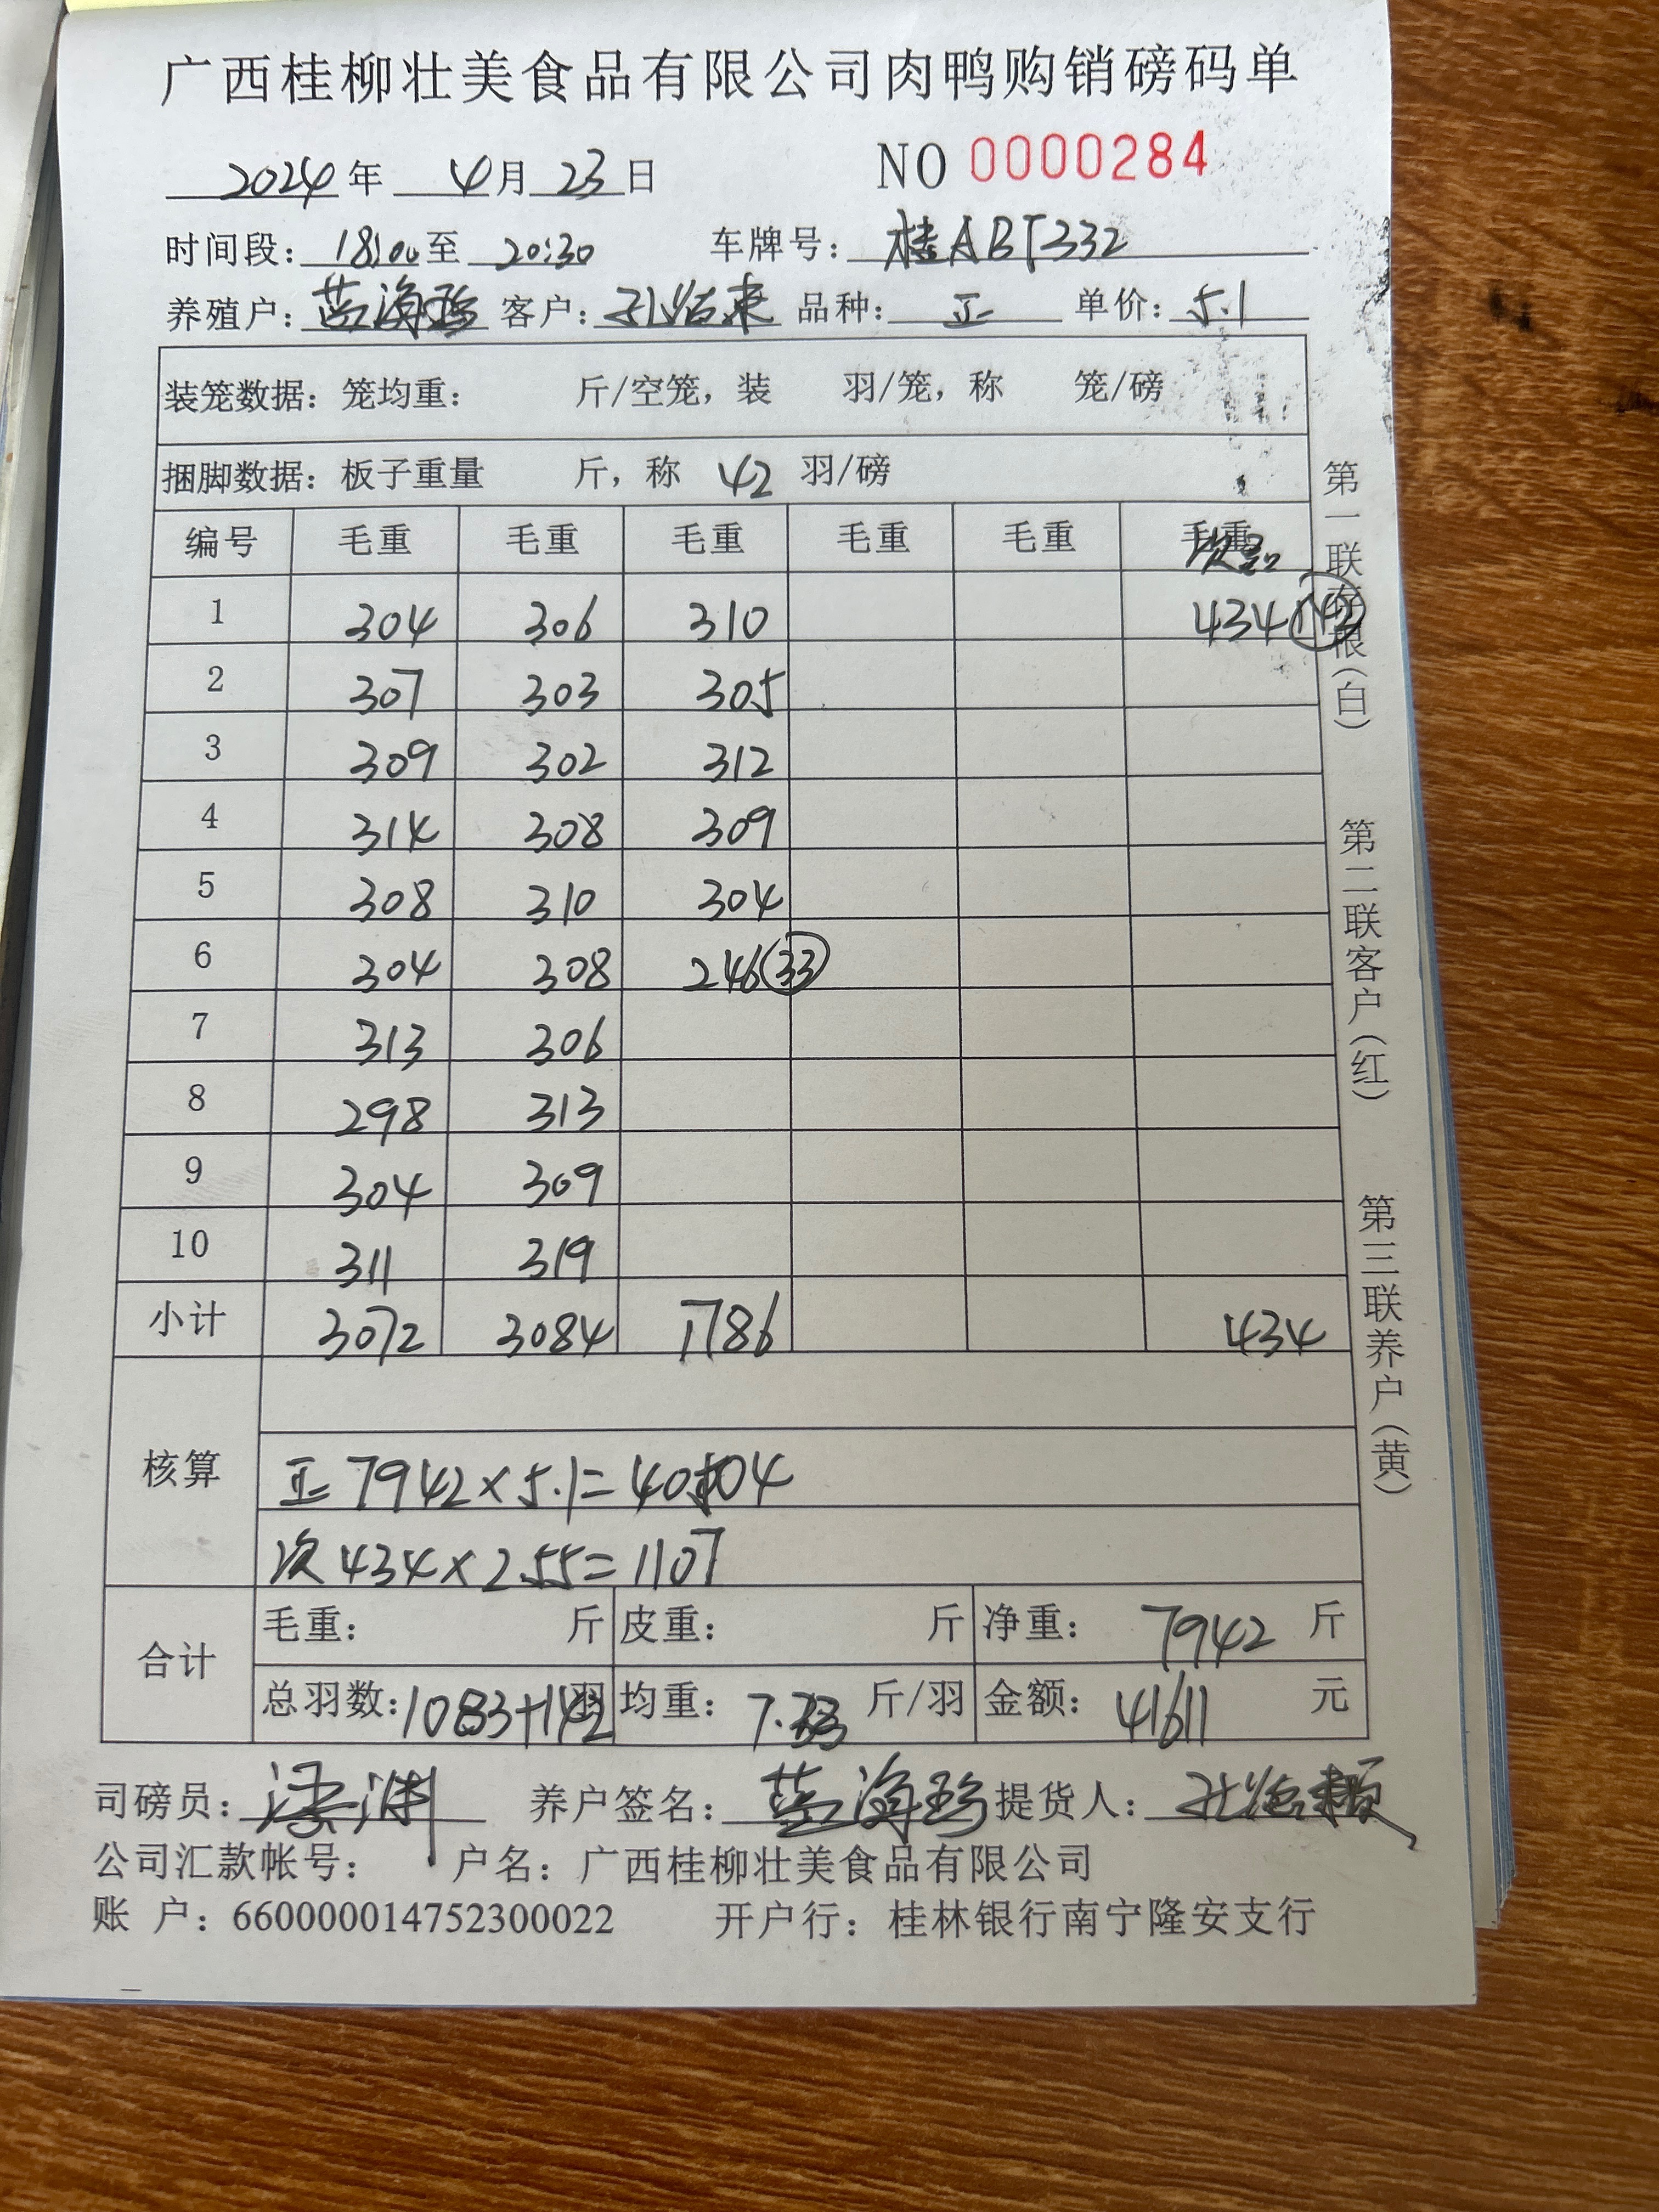 广西桂柳壮美食品有限公司肉鸭购销磅码单
2024年 4月 23日 NO 0000284
时间段: 18:00至 20:30 车牌号: 桂AB
养殖户: 蓝海珍 客户: 品种: 正 单价: 5.1
装笼数据: 笼均重: 斤/空笼, 装 羽/笼, 称 笼/磅
捆脚数据: 板子重量 斤, 称 42 羽/磅
编号 毛重 毛重 毛重 毛重 毛重 毛重 次品
1 304 306 310 434 (142)
2 307 303 305
3 309 302 312
4 314 308 309
5 308 310 304
6 304 308 246 (33)
7 313 306
8 298 313
9 304 309
10 311 319
小计 3072 3084 1786 434
核算
正 7942×5.1=40504
次 434×2.55=1107
合计 毛重: 斤 皮重: 斤 净重: 7942 斤
总羽数: 1083+142 羽 均重: 7.33 斤/羽 金额: 41611 元
司磅员: 养户签名: 蓝海珍 提货人:
公司汇款帐号: 户名: 广西桂柳壮美食品有限公司
账 户: 660000014752300022 开户行: 桂林银行南宁隆安支行
第一联存根(白)
第二联客户(红)
第三联养户(黄)